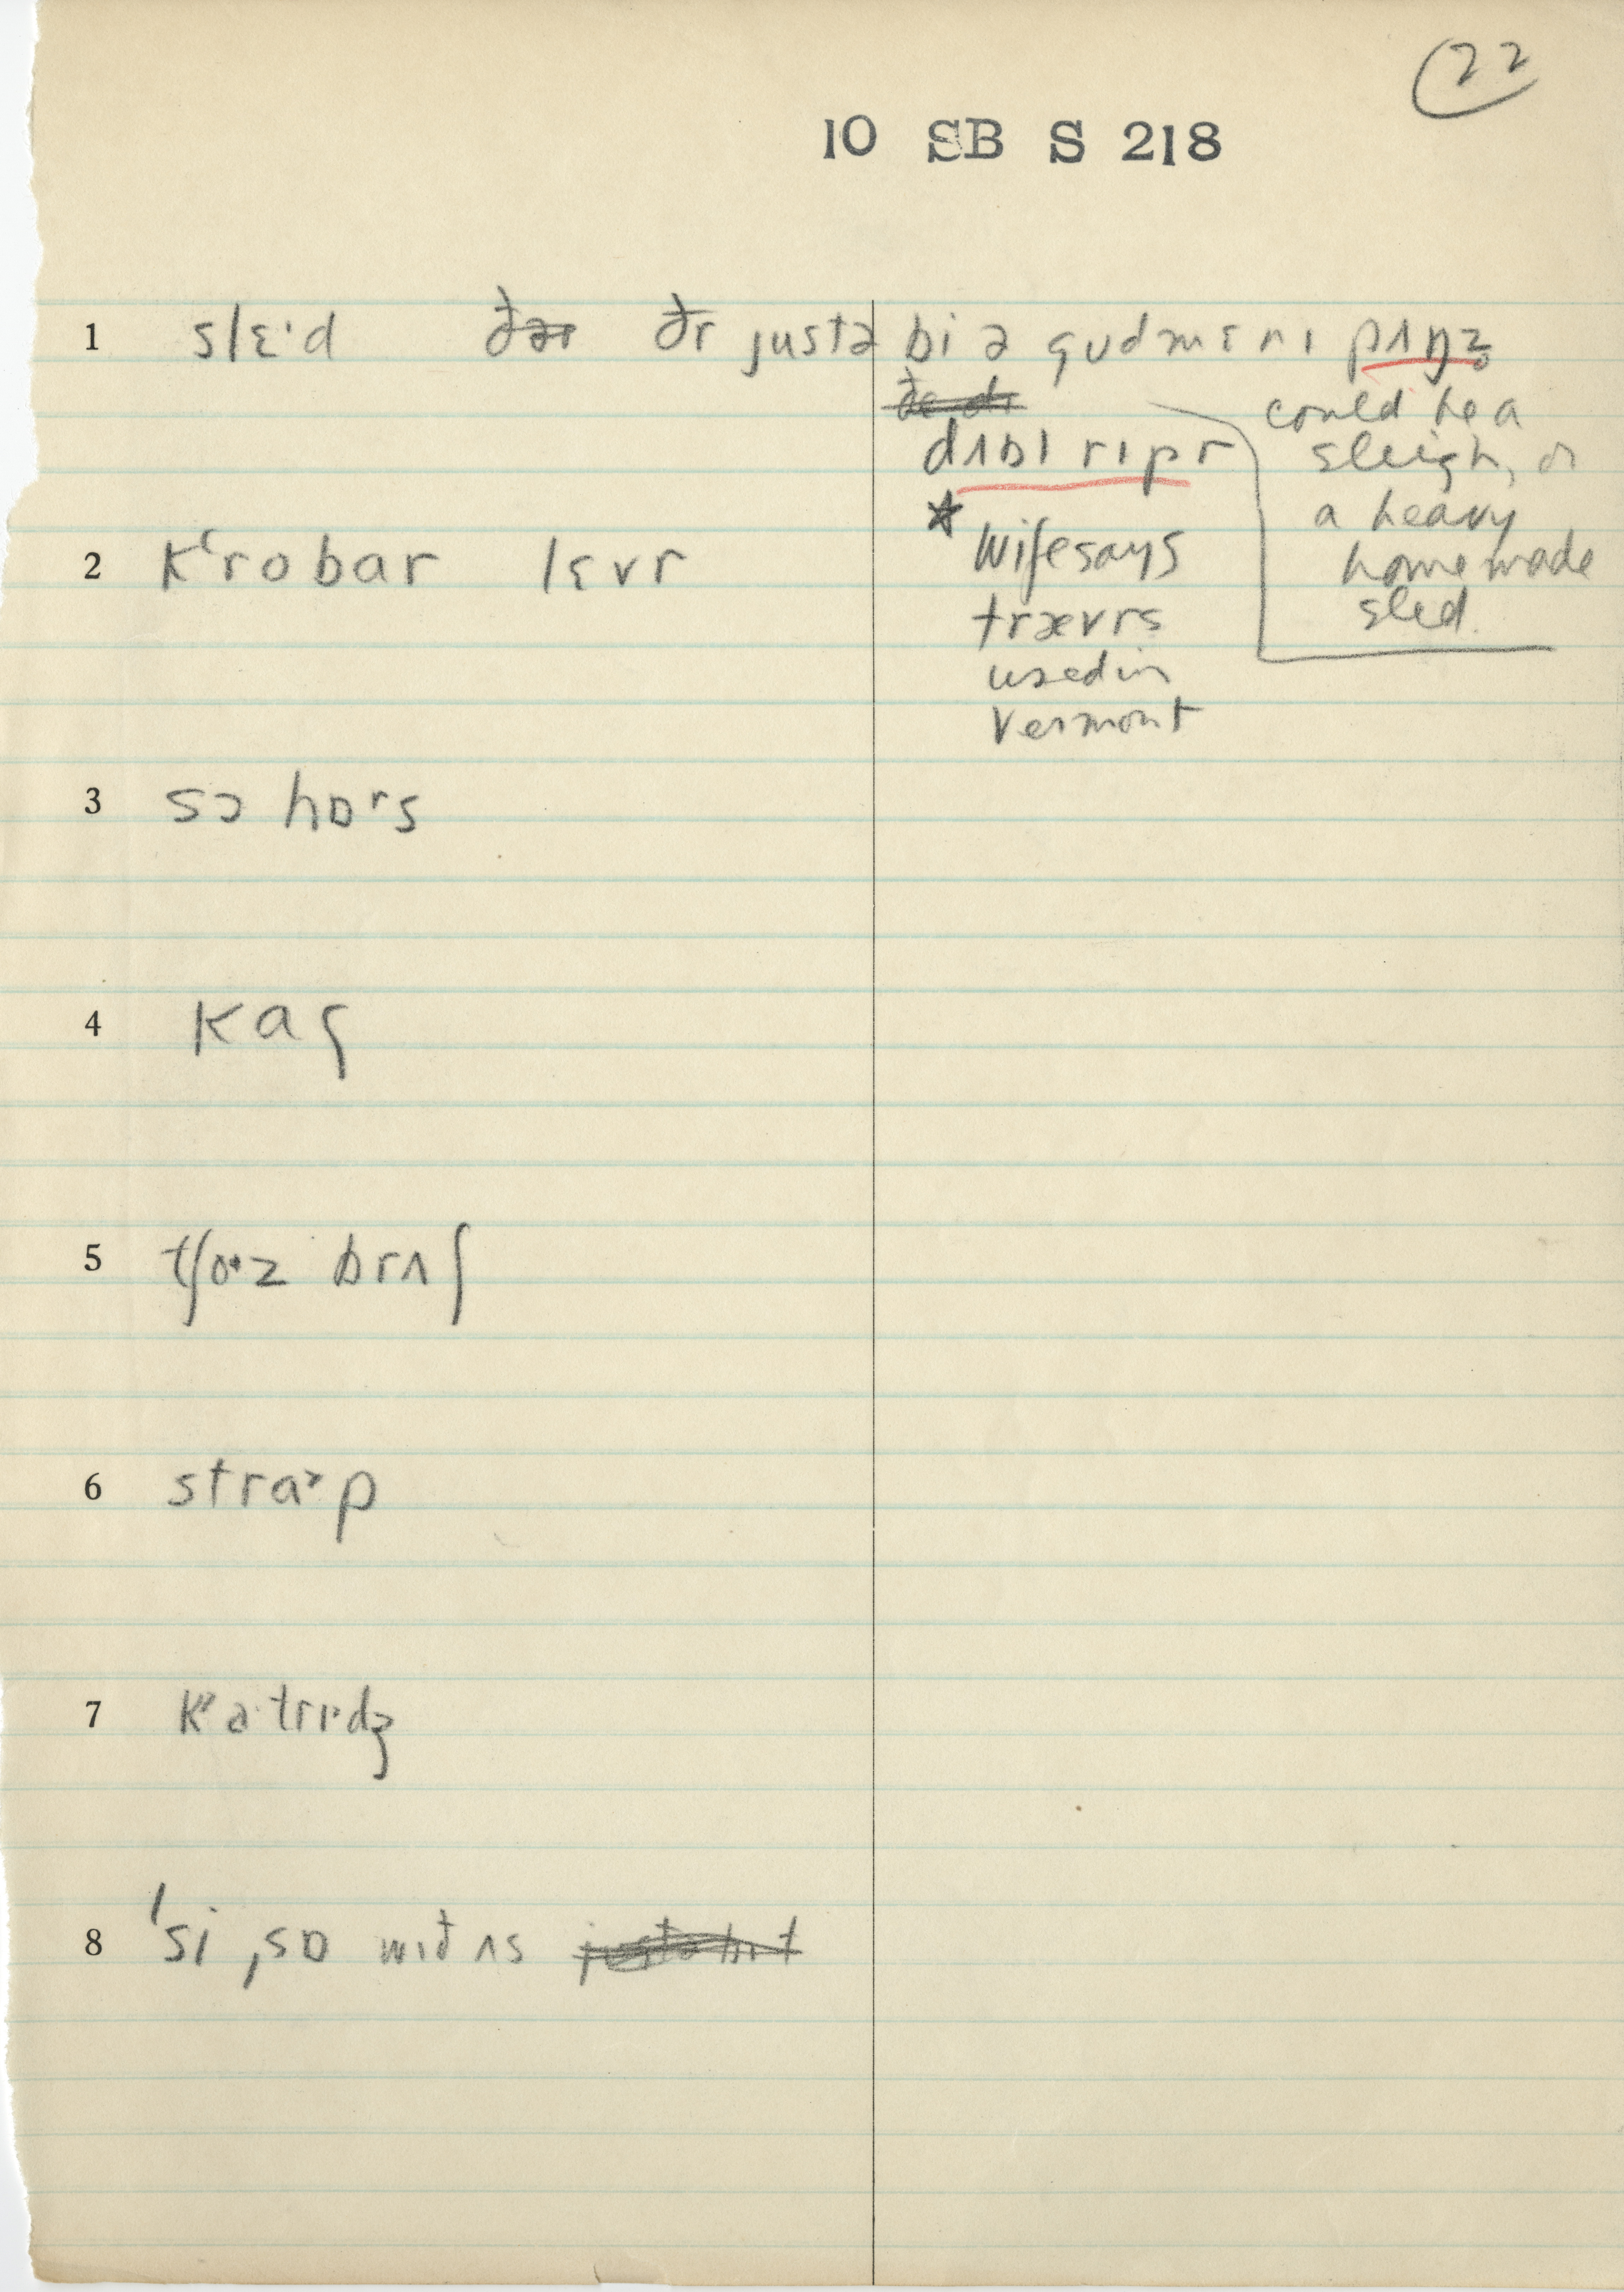 22
10 SB S 218
1 slɛ·d ðər ðr justə bi ə gudmɛnɪ pʌŋz̥
could be a
dʌbl rɪpr sleigh, or
a heavy
2 kʻrobar lɛvr wife says home made
trævrs sled.
used in
Vermont
3 sɔ hɒrs
4 kag
5 tʃɒ·z brʌʃ
6 stra˃p
7 kʻa·trɪ·dʒ
8 ˈsi ˌsɒ wið ʌs